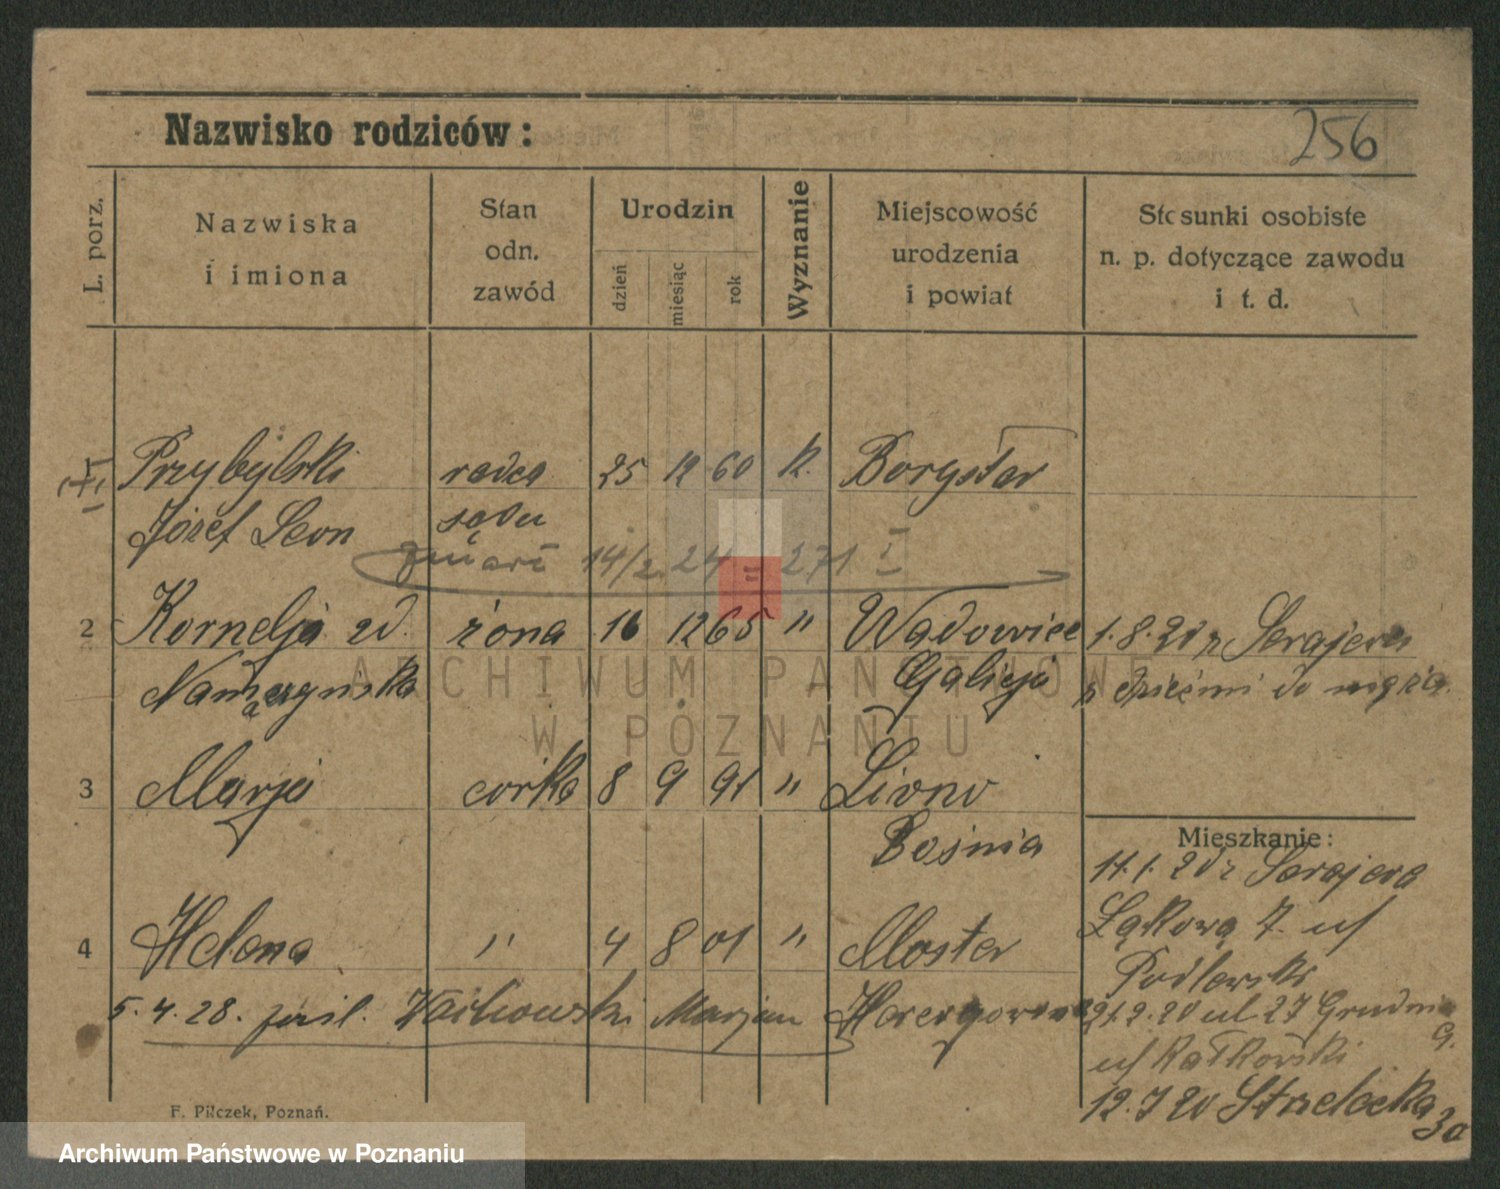 Nazwisko rodziców:
256
L. porz.
Nazwiska
i imiona
Stan
odn.
zawód
Urodzin
dzień
miesiąc
rok
Wyznanie
Miejscowość
urodzenia
i powiat
Stosunki osobiste
n. p. dotyczące zawodu
i t. d.
Przybylski radca 25 12 60 K. Borysław
Józef Leon sądu
zmarł 14/2 24 = 271 I
2 Kornelja żona 16 12 65 " Wadowice 1.8.20 z Serajewa
Galicja z dziećmi do męża.
3 Marja córka 8 9 91 " Livno
Bośnia
Mieszkanie:
z Serajewa
4 Helena " 4 8 01 " Mostar
Łąkowa 7. u/
Podlewski
5.4.28. Marjan
21.2.20 ul. 27 Grudnia
9.
u/
12.7 20 Strzelecka
30
F. Pilczek, Poznań.
ARCHIWUM PAŃSTWOWE
W POZNANIU
Archiwum Państwowe w Poznaniu